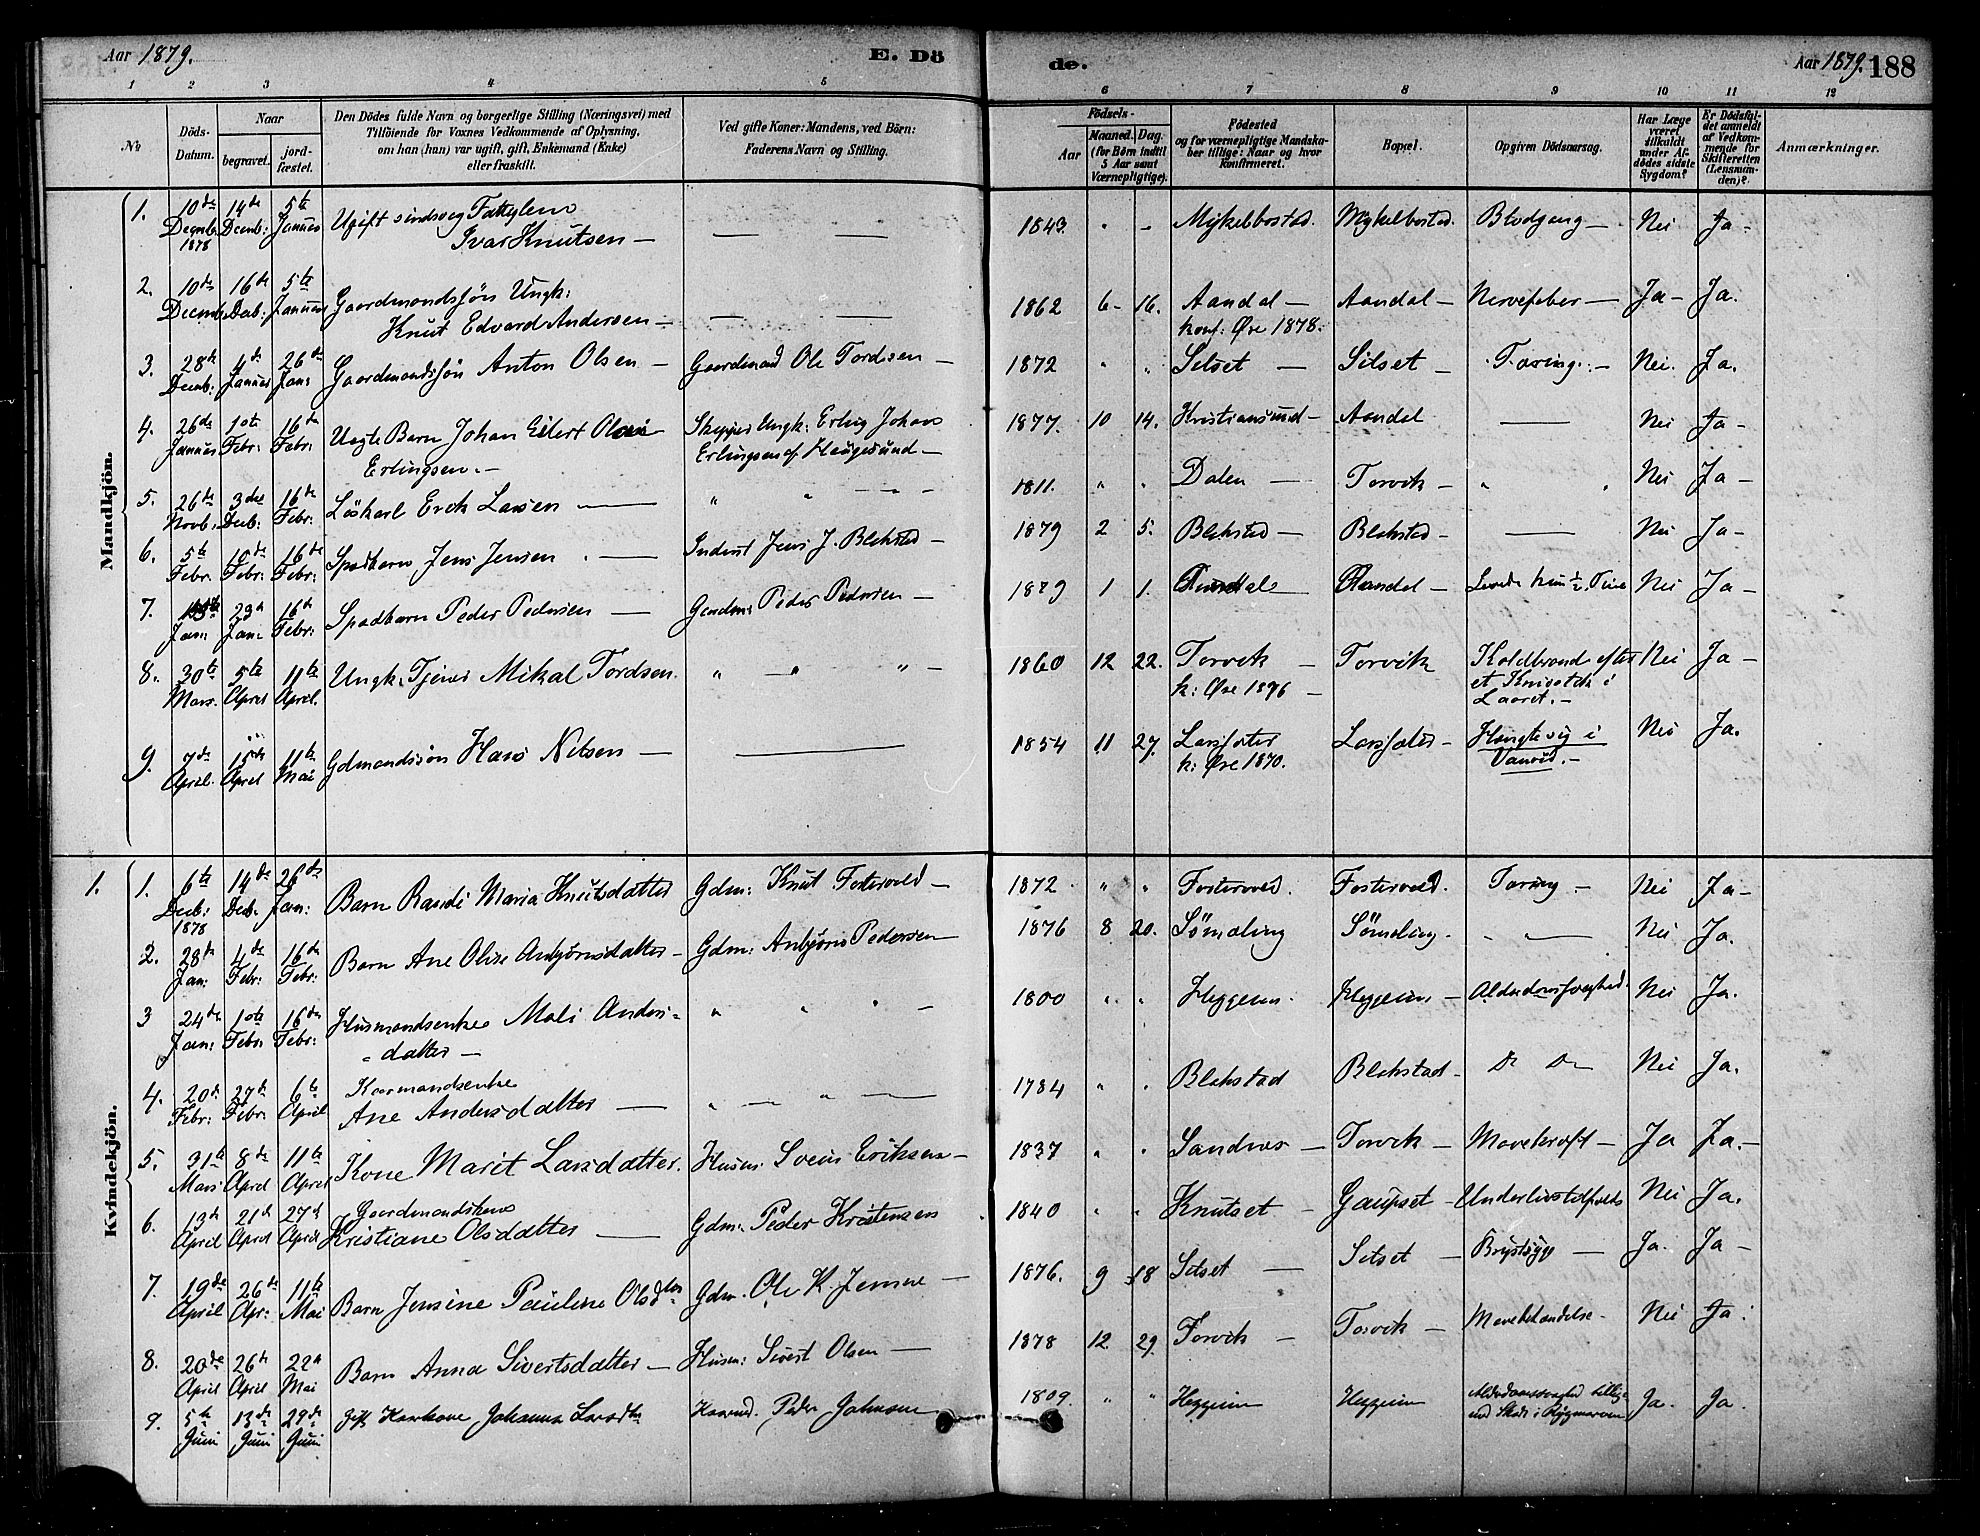 Aar 1879.
E. Dö
de.
Aar 1879.
188
1 2 3 4 5 6 7 8 9 10 11 12
No
Döds-Datum.
Naar
begravet.
jord-fæstet.
Den Dödes fulde Navn og borgerlige Stilling (Næringsvei) med
Tilföiende for Voxnes Vedkommende af Oplysning,
om han (hun) var ugift, gift, Enkemand (Enke)
eller fraskilt.
Ved gifte Koner: Mandens, ved Börn:
Faderens Navn og Stilling.
Födsels-
Aar
Maaned. Dag.
(for Börn indtil
5 Aar samt
Værnepligtige).
Födested
og for værnepligtige Mandska-
ber tillige: Naar og hvor
konfirmeret.
Bopæl.
Opgiven Dödsaarsag.
Har Læge
været
tilkaldt
under Af-
dödes sidste
Sygdom?
Er Dödsfal-
det anmeldt
af Vedkom-
mende for
Skifteretten
(Lensman-
den)?
Anmærkninger.
Mandkjön.
1. 10de Decmb. 1878 14de Decmb: 5te Januar Ugift sindsvag Fattiglem Ivar Knutsen — 1843 Myklebostad. Myklebostad. Blodgang — Nei Ja —
2. 10de Decmb. 16de Decb: 5te Januar Gaardmandssön Ungk: Knut Edvard Andersen — 1862 6 - 16. Aandal — konf: Øre 1878. Aandal — Nervefeber — Ja — Ja.
3. 28de Decmb: 4de Januar 26de Jan: Gaardmandssön Anton Olsen — Gaardmand Ole Tordsen — 1872 " " Silset — Silset — Tæring. — Nei. Ja.
4. 26de Januar 1ste Febr: 16de Febr: Uægte Barn Johan Eilert Erlingsen. — Skipper Ungk: Erling Johan Erlingsen af Haugesund — 1877 10 14. Kristiansund — Aandal — Nei Ja —
5. 26de Novb: 3die Decb: 16de Febr: Löskarl Erik Larsen — " " 1811. " " Dalen — Torvik — " " Nei Ja —
6. 5te Febr. 10de Febr: 16de Febr: Spædbarn, Jens Jensen — Inderst Jens J. Blekstad — 1879 2 5. Blekstad — Blekstad — Nei Ja —
7. Jan: 23de Jan: 16de Febr: Spædbarn Peder Pedersen — Gaardm: Peder Pedersen — 1879 1 1. Aandal — Levede kun ½ Time Nei Ja —
8. 30te Mars. 5te April 11te April. Ungk: Tjener Mikal Tordsen. " " — 1860 12 22. Torvik — k: Øre 1876 — Torvik Koldbrand efter et Knivstik i Laaret. — Nei Ja —
9. 7de April. 15de April 11te Mai Gdmandssön Hans Nilsen — 1854 11 27. Larsfater k: Øre 1870. Larsfater — i Vanvid. — Nei Ja.
Kvindekjön.
1. 1. 6te Decb: 1878 14de Decb. 26de Jan: Barn Randi Maria Knutsdatter Gdm: Knut Fostervold — 1872 " " Fostervold. Fostervold. Tæring — Nei Ja —
2. 28de Jan: 4de Febr: 16de Febr: Barn Ane Oline Anbjörnsdatter — Gdm: Anbjörn Pedersen 1876 8 20. Sömeling Sömeling. " " Nei Ja.
3 24de Jan: 1ste Febr 16de Febr: Husmandsenke Mali Anders-datter — " " " — 1800 " " Heggeim. Heggeim — Alderdomssvaghed. Nei Ja.
4. 20de Febr: 27de Febr: 6te April Kaarmandsenke Ane Andersdatter — " — " — 1784 " " Blekstad Blekstad — Do Do Nei Ja.
5. 31te Mars 8de April 11te April Kone Marit Larsdatter. Husm: Svein Eriksen — 1837 " " Sandnes — Torvik — Mavekræft — Ja Ja. —
6. 13de April 21de April 27de April Gaardmandskone Kristiane Olsdatter — Gdm: Peder Kristensen 1840 " " Knutset — Gaupset — Nei Ja.
7. 19de April 26de Apr: 11te Mai Barn Jensine Pauline Olsdtr Gdm. Ole K. Jensen — 1876. 9 18 Silset — Silset — Brystsyge — Ja. Ja —
8. 20de April 26de April 22de Mai Barn Anna Sivertsdatter — Husm: Sivert Olsen — 1878 12 29. Torvik — Torvik — Mavebetændelse. Nei Ja.
9. 5te Juni 13de Juni 29de Juni Gift Kaarkone Johanna Larsdtr Kaarmd. Peder Johnsen 1809. " " Heggeim Heggeim Alderdomssvaghed tillige med Skade i Rygmarven Ja. Ja.